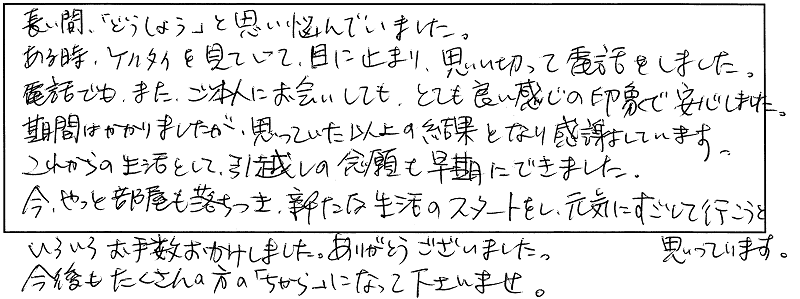 長い間、「どうしよう」と思い悩んでいました。
ある時、ケイタイを見ていて、目に止まり、思い切って電話をしました。
電話でも、また、ご本人にお会いしても、とても良い感じの印象で安心しました。
期間はかかりましたが、思っていた以上の結果となり感謝しています。
これからの生活として、引越しの念願も早期にできました。
今、やっと部屋も落ちつき、新たな生活のスタートをし、元気にすごして行こうと
思っています。
いろいろお手数おかけしました。ありがとうございました。
今後もたくさんの方の「ちから」になって下さいませ。